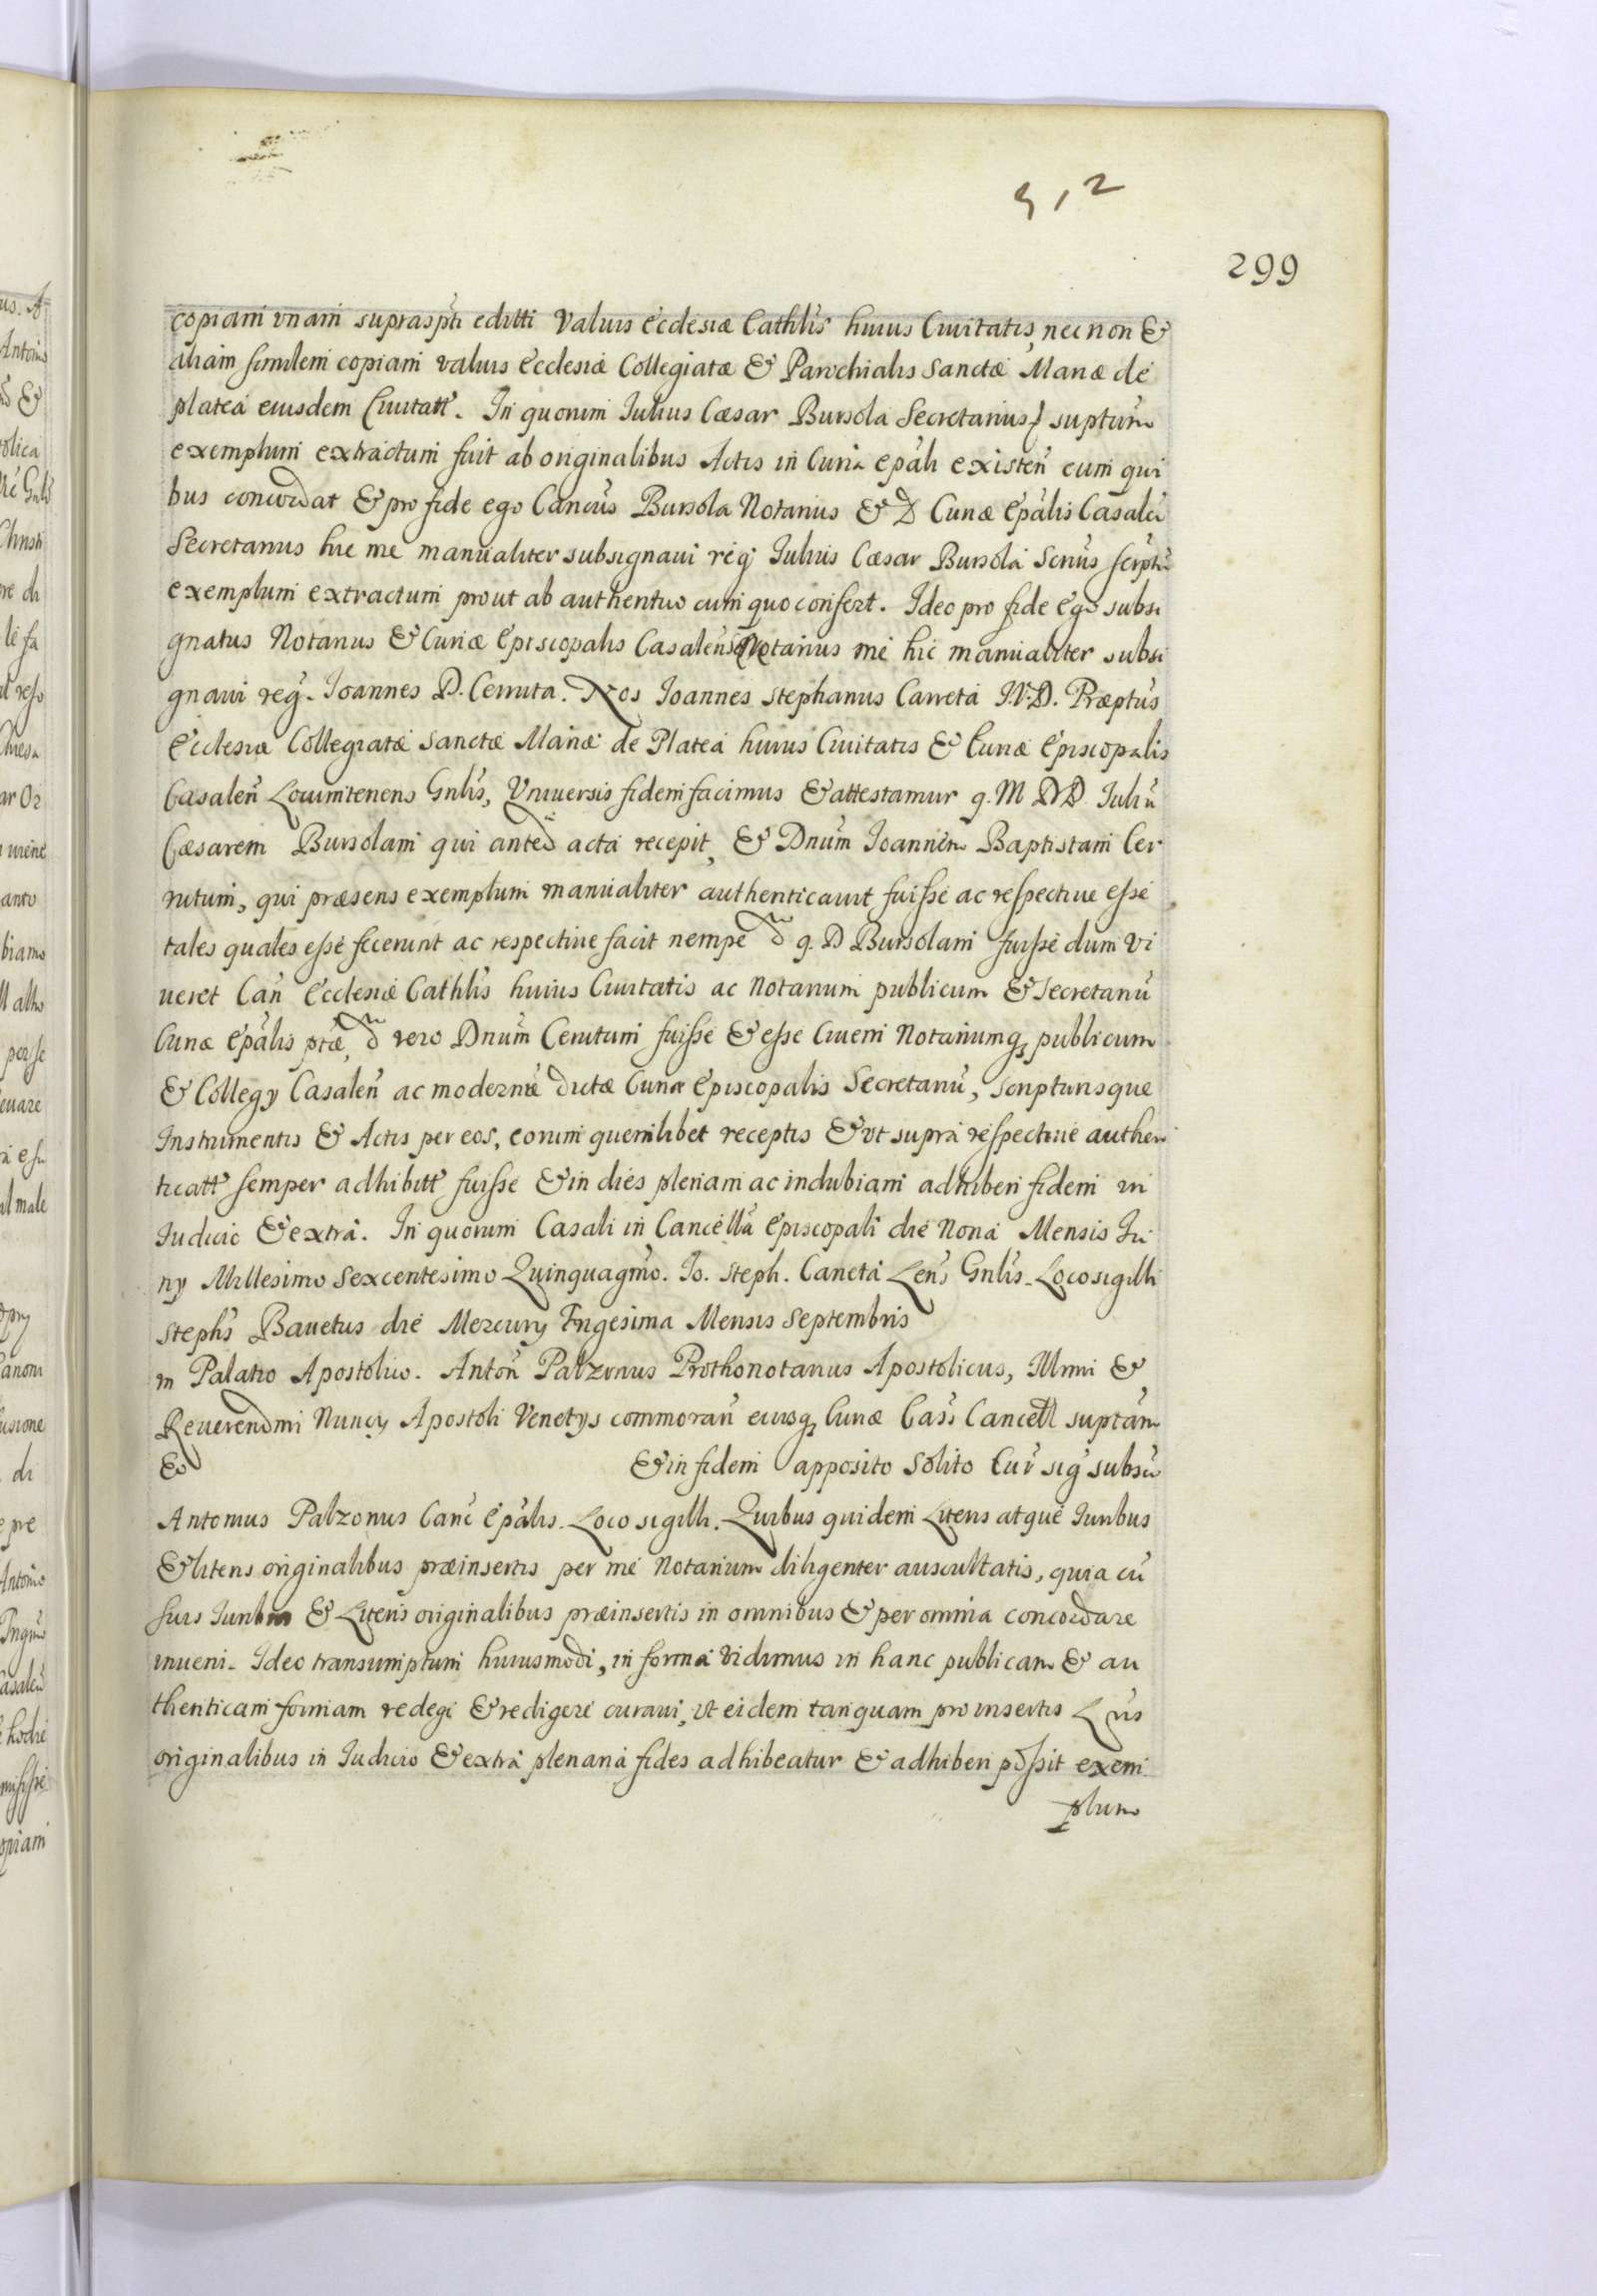 912
299
copiam vnam supraspti editti Valuis Ecclesiæ Cathlis huius Ciuitatis, nec non &
aliam similem copiam valuis Ecclesiæ Collegiatæ & Parochialis Sanctæ Mariæ de
platea eiusdem Ciuitatt. In quorum Iulius Cæsar Bursola Secretarius suptum
exemplum extractum fuit ab originalibus Actis in Curia epali existen cum qui
bus concordat & pro fide ego Cancus Bursola Notarius & D Curiæ Epalis Casalen
Secretarius hic me manualiter subsignaui reg Iulius Cæsar Bursola Serius scriptu
exemplum extractum prout ab authentico cum quo confert. Ideo pro fide Ego subsi
gnatus Notarius & Curiæ Episcopalis Casalens Notarius me hic manualiter subsi
gnaui reg. Ioannes D. Cerruta. Nos Ioannes Stephanus Carreta I.V.D. Præptus
Ecclesiæ Collegiatæ Sanctæ Mariæ de Platea huius Ciuitatis & Curiæ Episcopalis
Casalen Locumtenens Gnlis, Vniuersis fidem facimus & attestamur q. M DD Iuliu
Cæsarem Bursolam qui anted acta recepit, & Dnum Ioannem Baptistam Cer
rutum, qui præsens exemplum manualiter authenticauit fuisse ac respectiue esse
tales quales esse fecerunt ac respectiue facit nempe d q. D Bursolam fuisse dum vi
ueret Can Ecclesiæ Cathlis huius Ciuitatis ac Notarium publicum & Secretariu
Curiæ Epalis ptæ, d vero Dnum Cerrutum fuisse & esse Ciuem Notariumq publicum
& Collegy Casalen ac modernu dictæ Curiæ Episcopalis Secretariu, scripturisque
Instrumentis & Actis per eos, eorum quemlibet receptis & vt supra respectiue authen
ticatt semper adhibitt fuisse & in dies plenam ac indubiam adhiberi fidem in
Iudicio & extra. In quorum Casali in Cancellia Episcopali die Nona Mensis Iu
ny Millesimo Sexcentesimo Quinquagmo. Io. Steph. Carreta Lens Gnlis. Loco sigilli
Stephs Bauetus die Mercury Trigesima Mensis Septembris
in Palatio Apostolico. Anton Palzonus Prothonotarius Apostolicus, Illmi &
Reuerendmi Nuncy Apostoli Venetys commoran eiusq Curiæ Cass Cancell suptam
& & in fidem apposito Solito Cur sig subsu
Antonius Palzonus Canc Epalis. Loco sigilli. Quibus quidem Literis atque Iuribus
& literis originalibus præinsertis per me Notarium diligenter auscultatis, quia cu
suis Iuribus & Literis originalibus præinsertis in omnibus & per omnia concordare
inueni. Ideo transumptum huiusmodi, in forma vidimus in hanc publicam & au
thenticam formam redegi & redigere curaui, vt eidem tanquam pro insertis Lris
originalibus in Iudicio & extra plenaria fides adhibeatur & adhiberi possit exem
plum